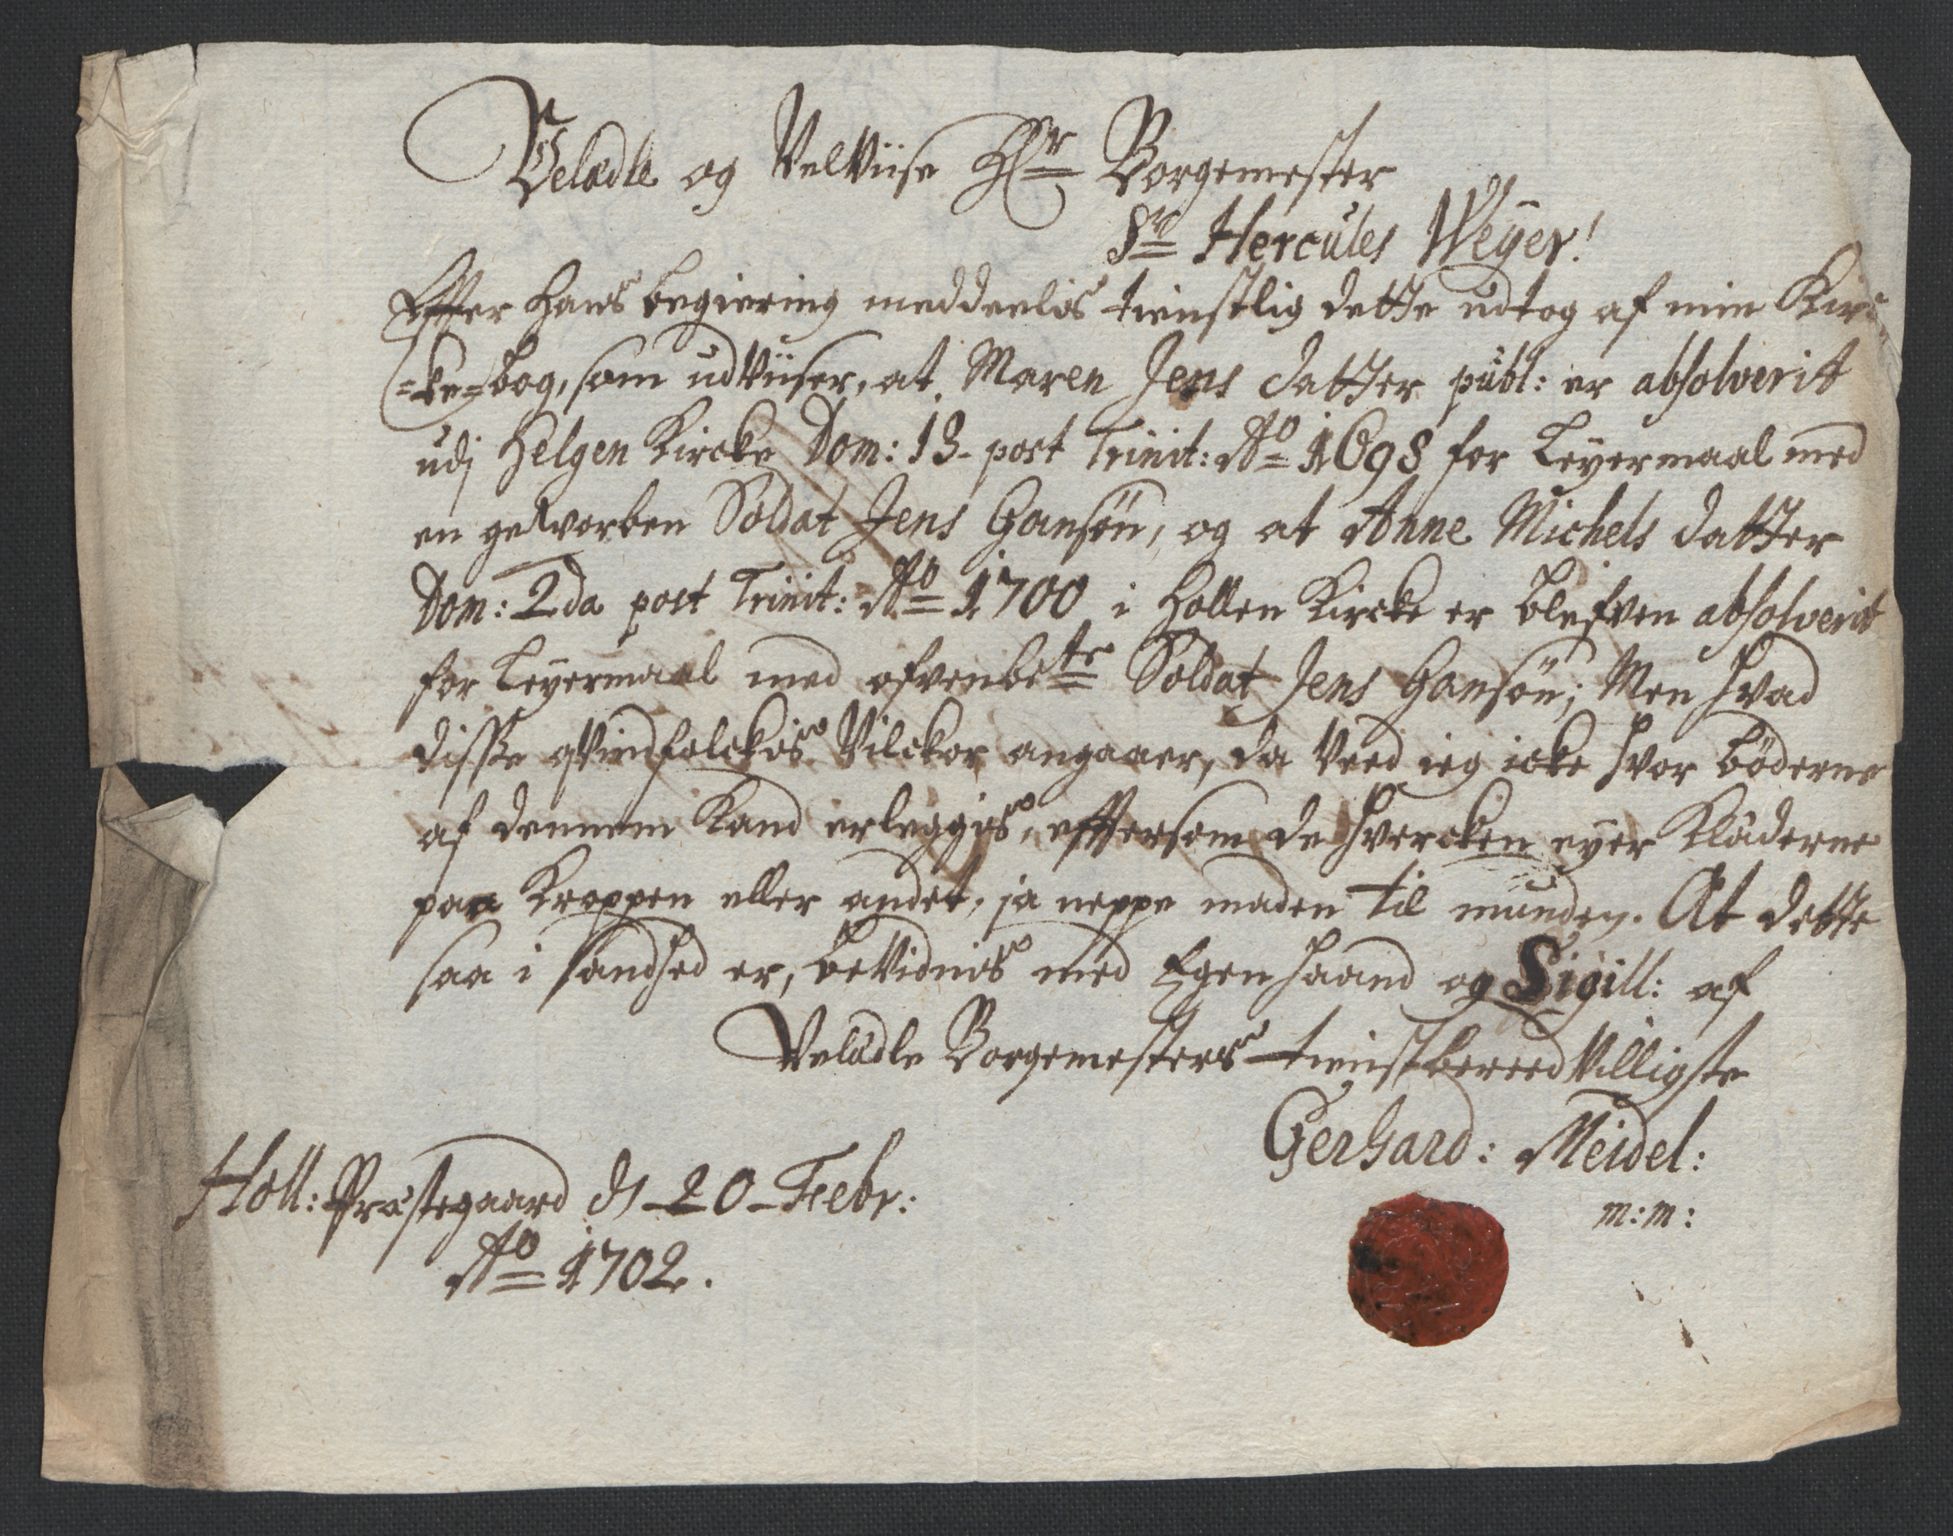 Velædle og VelViise Hr Borgemester
Sr Hercules Weÿer!
Effter hans begiering meddeelis tienstlig dette udtog af min Kir-
=ke=bog, som udViiser, at Maren Jens datter publ: er absolverit
udj Helgen Kircke Dom: 13 post Trinit: Ao 1698 for Leyermaal med
en geworben Soldat Jens Hansøn, og at Anne Michels datter
Dom: 2da post Trinit: Ao 1700 i Hollen Kircke er blefven absolverit
for Leyermaal med ofvenbete Soldat Jens Hansøn; Men hvad
disse qvindfolckis Vilckor angaaer, da Veed ieg icke hvor bøderne
af dennem Kand erleggis, efftersom de hvercken eyer Klæderne
paa Kroppen eller andet, ja neppe maden til munden. At dette
saa i sandhed er, beVidnis med Egen haand og Sigill: af
Velædle Borgemesters tienstbereedVilligste
Gerhard: Meidel:
m:m:
Holl: Præstegaard d 20 Febr:
Ao 1702.